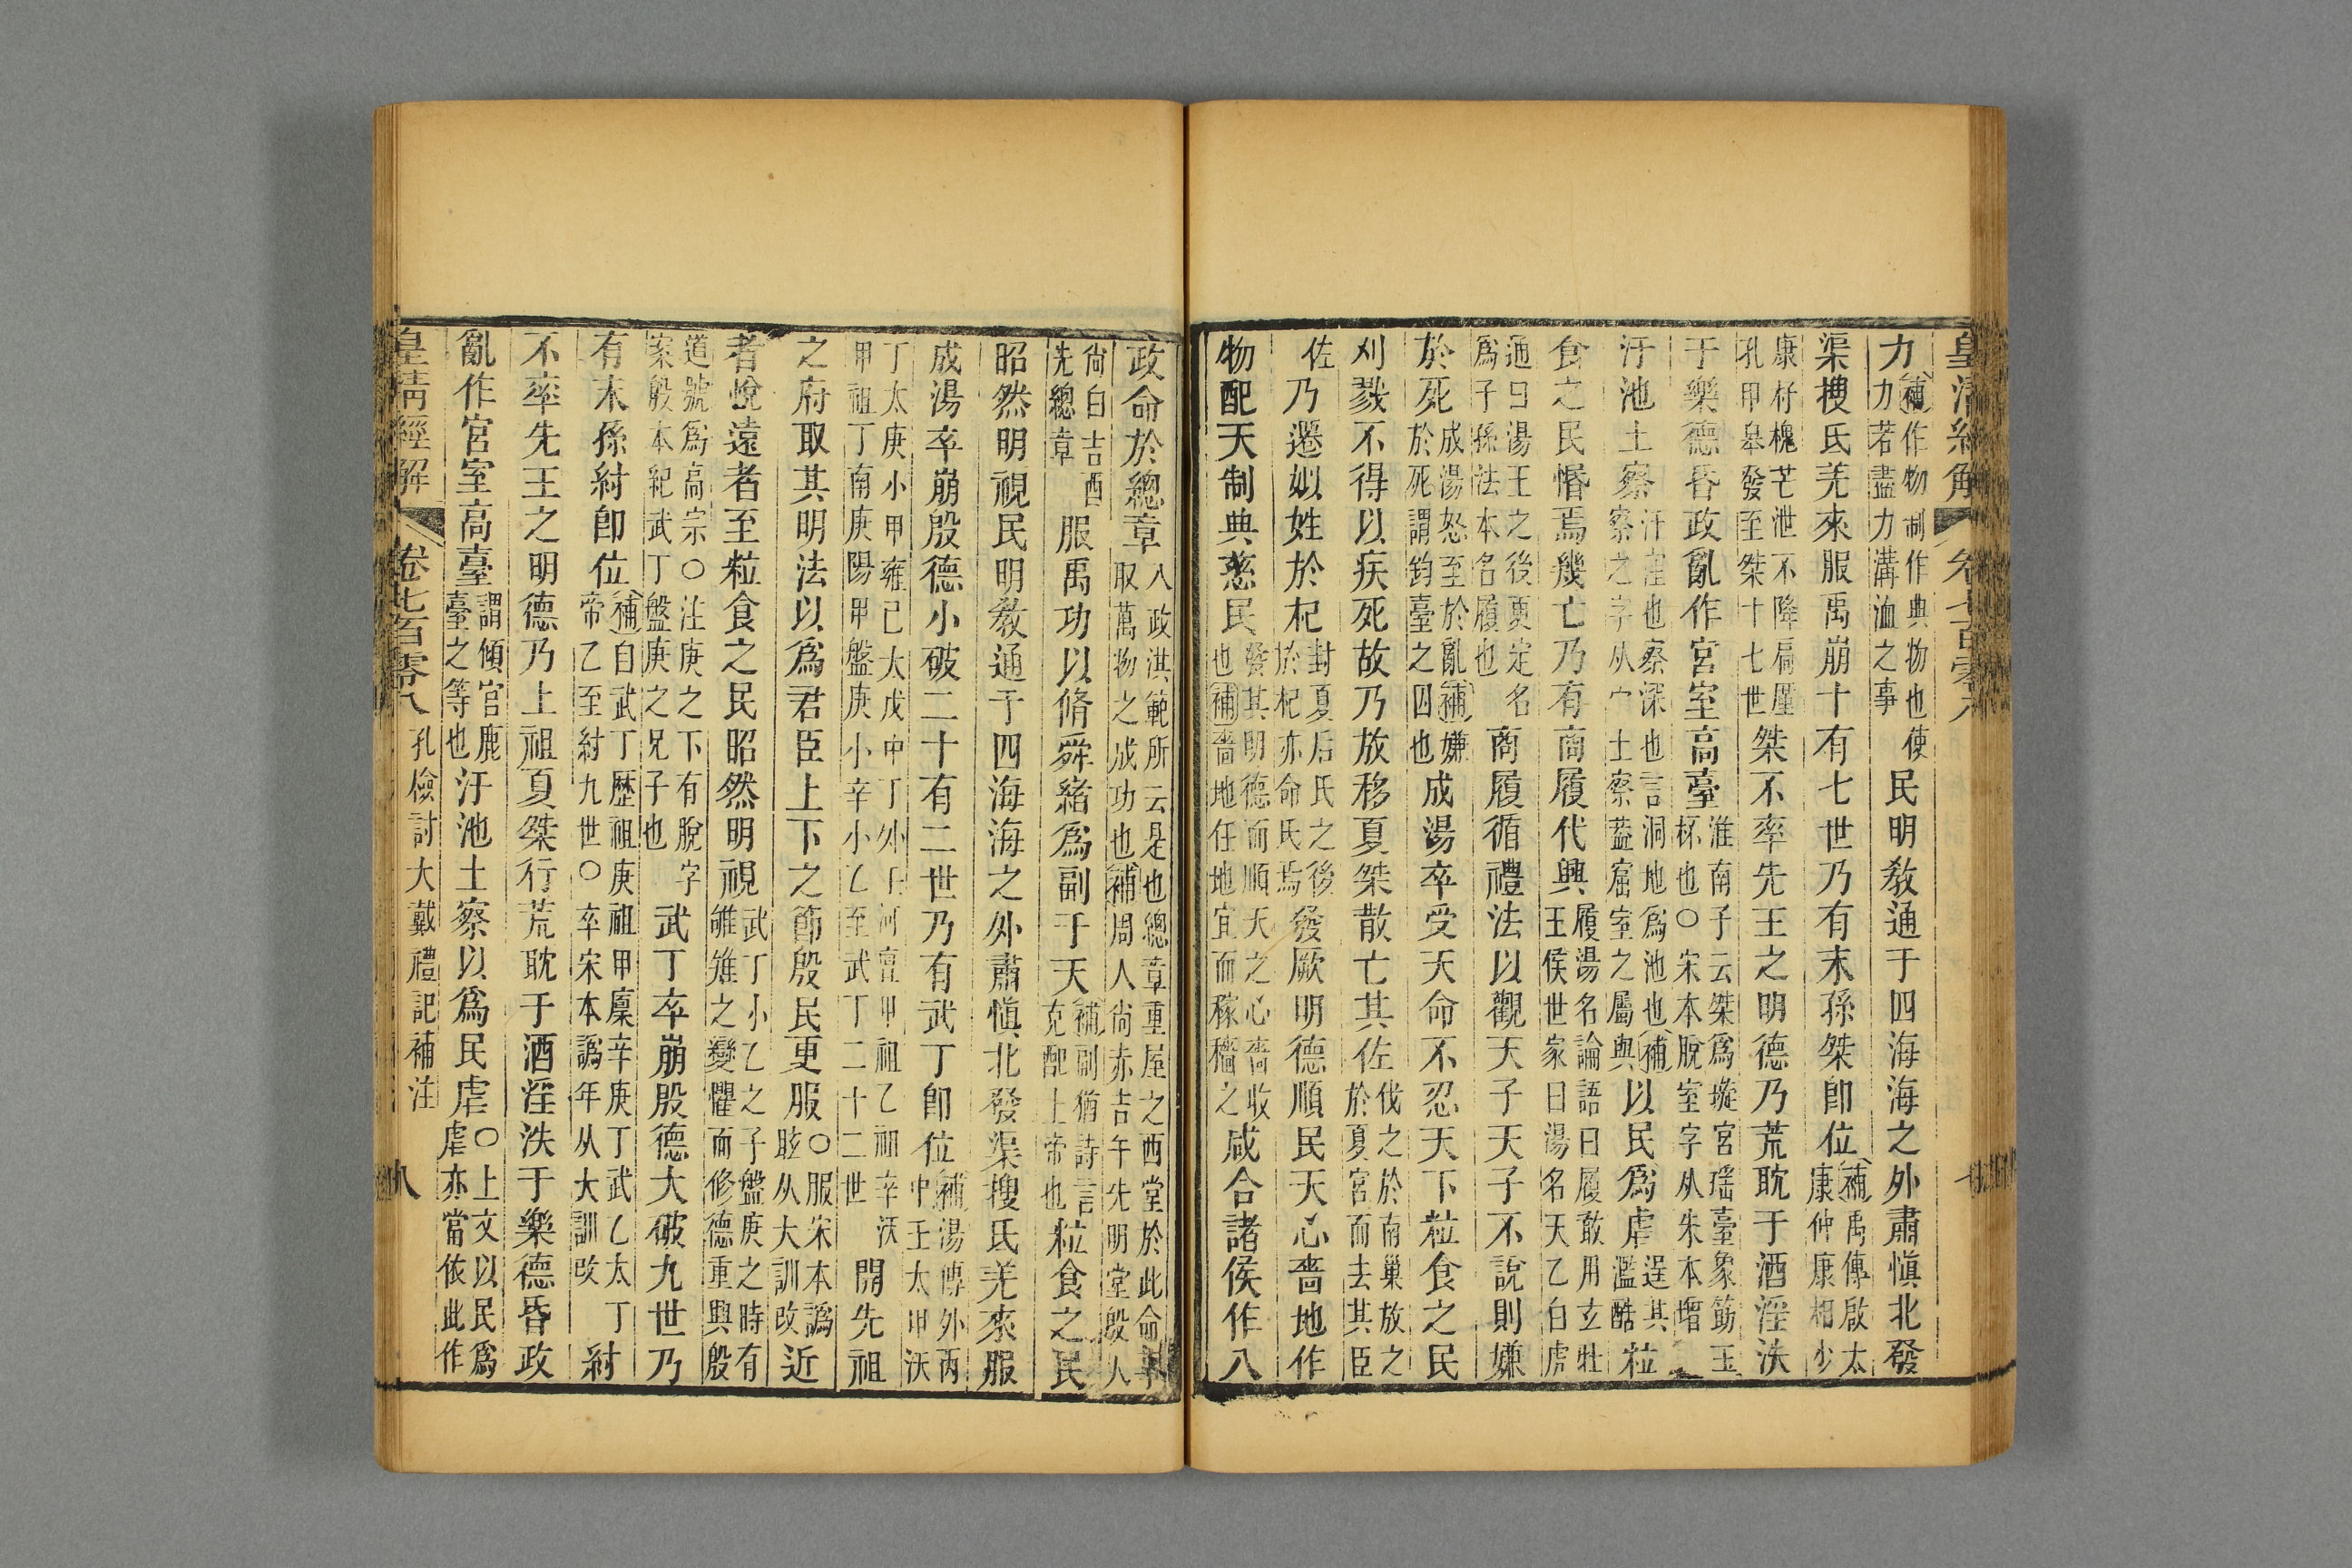 皇清經解 卷七百零八 七
力補作物制作典物也使力若盡力溝洫之事民明教通于四海海之外肅慎北發
渠搜氏羌來服禹崩十有七世乃有末孫桀卽位補禹傳啟太康仲康相少
康杼槐芒泄不降扃廑孔甲皋發至桀十七世桀不率先王之明德乃荒耽于酒淫泆
于樂德昏政亂作宮室高臺淮南子云桀爲璇宮瑤臺象筯玉杯也○宋本脫室字从朱本增
汙池土察汙窪也察深也言洞地爲池也補察之字从宀土察葢窟室之屬與以民爲虐逞其濫酷粒
食之民惛焉幾亡乃有商履代興履湯名論語曰履敢用玄牡王侯世家曰湯名天乙白虎
通曰湯王之後更定名爲子孫法本名履也商履循禮法以觀天子天子不說則嫌
於死成湯怒至於亂補嫌於死謂鈞臺之囚也成湯卒受天命不忍天下粒食之民
刈戮不得以疾死故乃放移夏桀散亡其佐伐之於南巢放之於夏宮而去其臣
佐乃遷姒姓於杞封夏后氏之後於杞亦命氏焉發厥明德順民天心嗇地作
物配天制典慈民發其明德而順天之心嗇收也補嗇地任地宜而稼穡之咸合諸侯作八
政命於總章八政淇範所云是也總章重屋之西堂於此命事取萬物之成功也補周人尚赤吉午先明堂殷人
尚白吉酉先總章服禹功以脩舜緒爲副于天補副猶詩言克配上帝也粒食之民
昭然明視民明教通于四海海之外肅慎北發渠搜氏羌來服
成湯卒崩殷德小破二十有二世乃有武丁卽位補湯傳外丙中壬太甲沃
丁太庚小甲雍己太戊中丁外壬河亶甲祖乙祖辛沃甲祖丁南庚陽甲盤庚小辛小乙至武丁二十二世開先祖
之府取其明法以爲君臣上下之節殷民更服○服宋本譌眩从大訓改近
者悅遠者至粒食之民昭然明視武丁小乙之子盤庚之時有雊雉之變懼而修德重興殷
道號爲高宗○注庚之下有脫字案殷本紀武丁盤庚之兄子也武丁卒崩殷德大破九世乃
有末孫紂卽位補自武丁歷祖庚祖甲廩辛庚丁武乙太丁帝乙至紂九世○卒宋本譌年从大訓改紂
不率先王之明德乃上祖夏桀行荒耽于酒淫泆于樂德昏政
亂作宮室高臺謂傾宮鹿臺之等也汙池土察以爲民虐○上文以民爲虐亦當依此作
皇清經解 卷七百零八 孔檢討大戴禮記補注 八